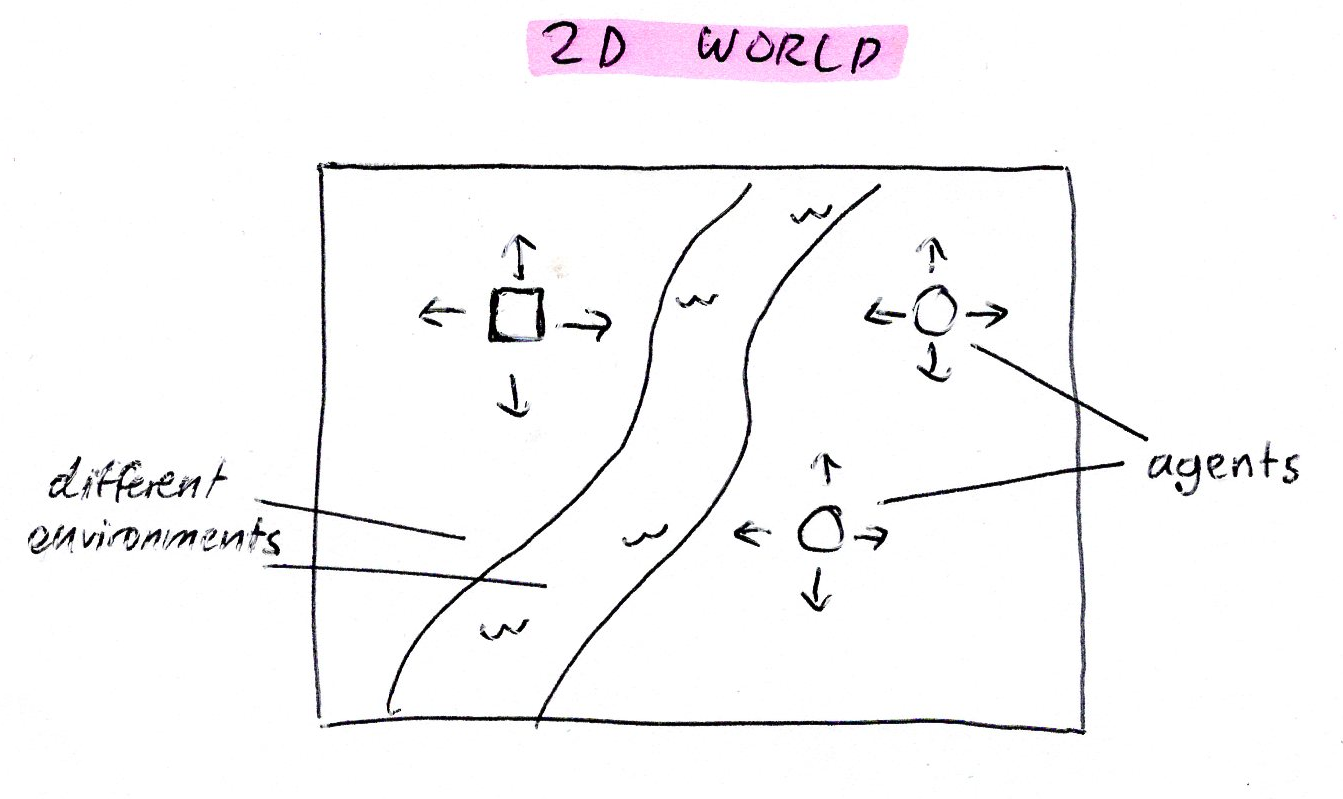 2D WORLD
different
environments
agents